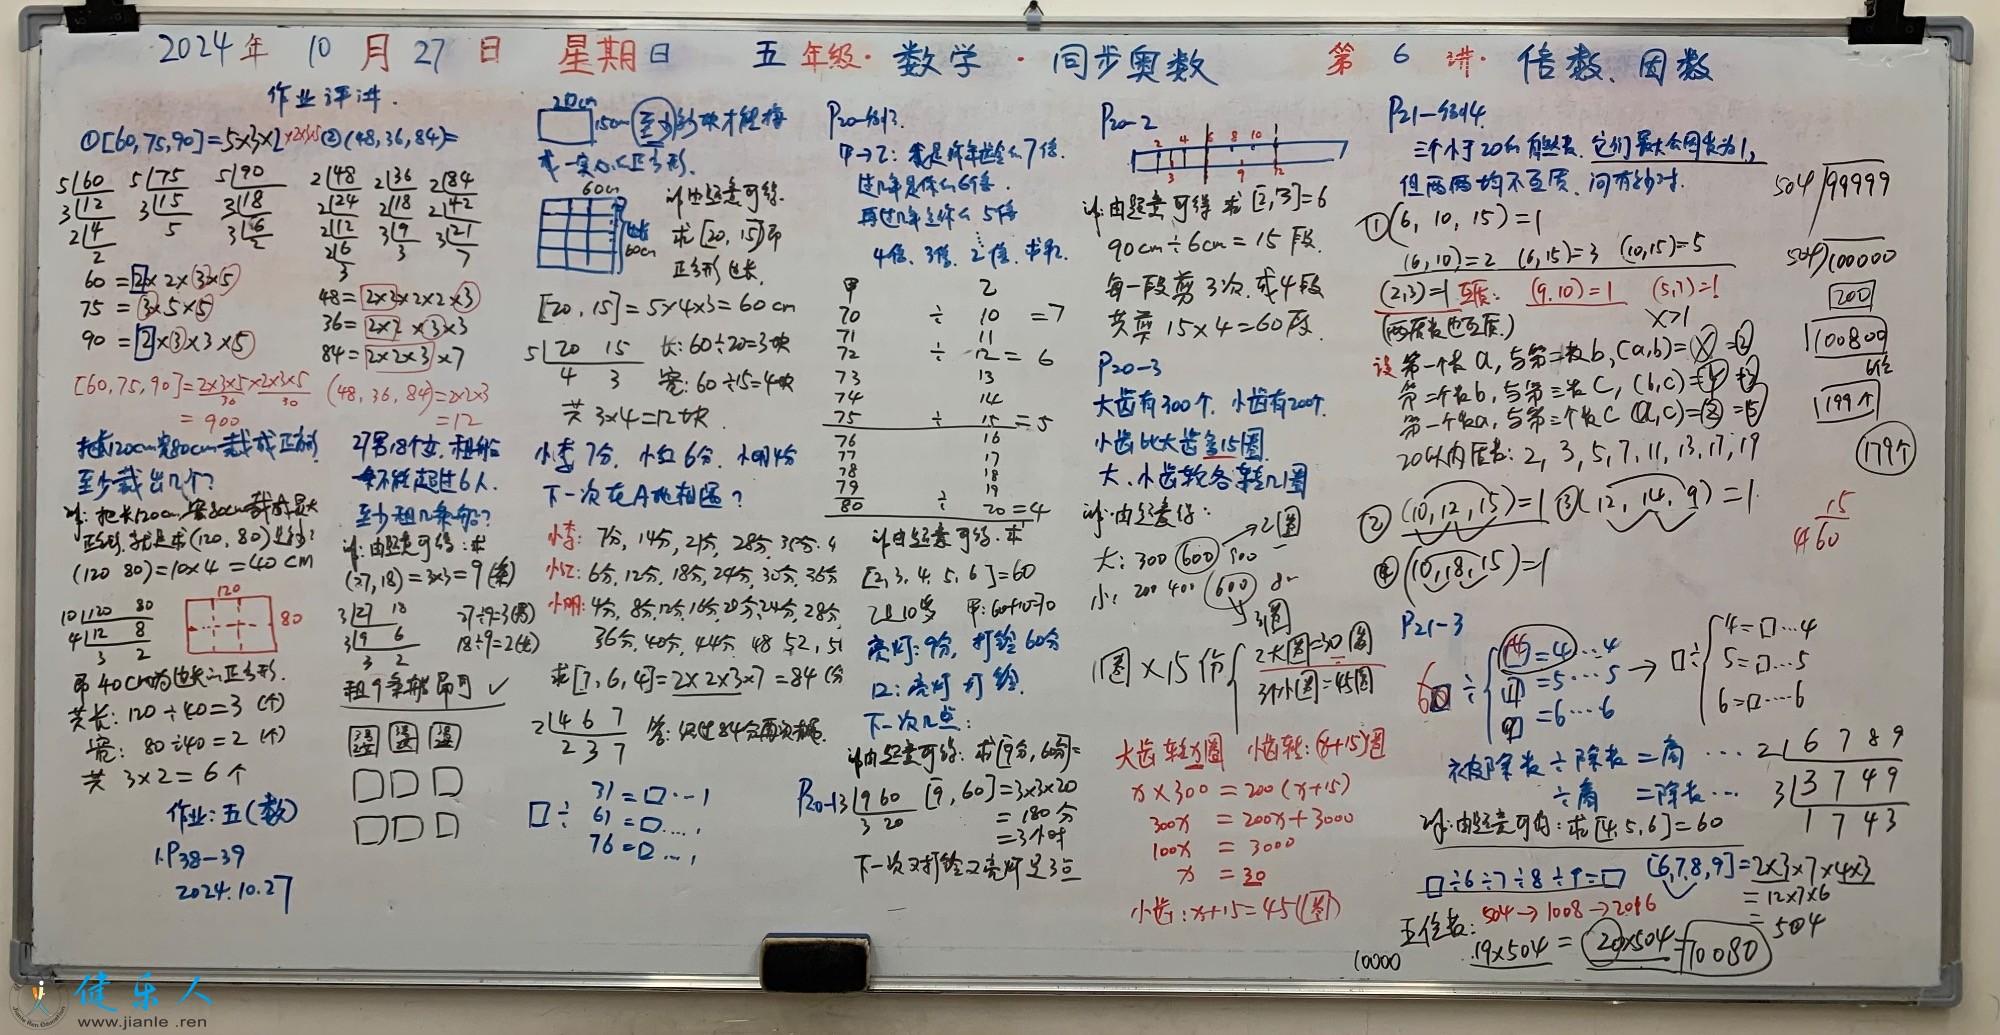 2024年 10月27日 星期日 五年级·数学·同步奥数 第6讲·倍数、因数
作业评讲.
①[60,75,90]=5×3×2×2×3×5 ②(48,36,84)=
5 60 5 75 5 90 2 48 2 36 2 84
3 12 3 15 3 18 2 24 2 18 2 42
2 4 5 3 6 2 12 3 9 3 21
2 2 2 6 3 7
3
60=2×2×3×5
75=3×5×5
90=2×3×3×5
48=2×2×2×2×3
36=2×2×3×3
84=2×2×3×7
[60,75,90]=2×3×5×2×3×5
30 30
=900
(48,36,84)=2×2×3
=12
把长120cm宽80cm裁成正方形
至少裁出几个?
(120 80)=10×4=40cm
10 120 80
4 12 8
3 2
120
80
即40cm为边长的正方形.
共长:120÷40=3(个)
宽:80÷40=2(个)
共 3×2=6个
作业:五(数)
1.P38-39
2024.10.27
27男18个女,租船
一条不能超过6人.
至少租几条船?
计:由题意可得:求
(27,18)=3×3=9(条)
3 27 18 27÷9=3(男)
3 9 6 18÷9=2(女)
3 2
租9条船即可 ✓
20cm
15cm 至少多少块才能拼
成一实心正方形.
60cm
60cm
计:由题意可得.
求[20,15]即
正方形边长.
[20,15]=5×4×3=60cm
5 20 15 长:60÷20=3块
4 3 宽:60÷15=4块
共3×4=12块.
小李7分,小红6分,小明4分
下一次在A地相遇?
小李:7分,14分,21分,28分,35分.4
小红:6分,12分,18分,24分,30分,36分
小明:4分,8分,12分,16分,20分,24分,28分,
36分,40分,44分,48,52,5
求[7,6,4]=2×2×3×7=84(分
2 4 6 7
2 3 7
答:经过84分再次相遇.
31=□…1
□÷ 61=□…,
76=□…,
P20-例3.
甲→乙:我是你年龄的7倍.
过几年是你的6倍.
再过几年是你的5倍
4倍、3倍、2倍.求和.
甲 乙
70 ÷ 10 =7
71 11
72 ÷ 12=6
73 13
74 14
75 ÷ 15=5
76 16
77 17
78 18
79 19
80 ÷ 20=4
计:由题意可得.求
[2,3,4,5,6]=60
乙10岁 甲:60+10=70
亮灯:9分,打铃60分
12:亮灯打铃.
下一次几点:
计:由题意可得:求[9分,60分]=
P20-13 9 60 [9,60]=3×3×20
3 20 =180分
=3小时
下一次又打铃又亮灯是3点
P20-2
2 4 6 8 10
3 9 12
计:由题意可得 求[2,3]=6
90cm÷6cm=15段.
每一段剪3次.或4段
共剪15×4=60段.
P20-3
大齿有300个.小齿有200个.
小齿比大齿多15圈.
大、小齿轮各转几圈
计:由题意得:
大:300 600 900 →2圈
小:200 400 600 8
3圈
1圈×15份{2大圈=30圈
3小圈=45圈
大齿转x圈 小齿转:(x+15)圈
x×300=200(x+15)
300x=200x+3000
100x=3000
x=30
小齿:x+15=45(圈)
P21-例4.
三个小于20的自然数.它们最大公因数为1,
但两两均不互质.问有多少对.
①(6,10,15)=1
(6,10)=2 (6,15)=3 (10,15)=5
(2,3)=1互质: (9,10)=1 (5,7)=1
(两质数也互质.) x>1
设第一个数a,与第二数b,(a,b)=
第二个数b,与第三数c,(b,c)=
第一个数a,与第三个数c (a,c)=
20以内质数:2,3,5,7,11,13,17,19
②(10,12,15)=1 ③(12,14,9)=1
④(10,18,15)=1
P21-3
60÷ 4=4…4
=5…5
=6…6
→□÷ 4=□…4
5=□…5
6=□…6
被除数÷除数=商…
÷商=除数…
计:由题意可得:求[4,5,6]=60
□÷6÷7÷8÷9=□ [6,7,8,9]=2×3×7×4×3
=12×7×6
=504
五位数:504→1008→2016
19×504=20×504=10080
10000
2 6 7 8 9
3 3 7 4 9
1 7 4 3
504 99999
504 100000
200
100800
6位
199个
179个
15
4 60
健乐人
www.jianle.ren